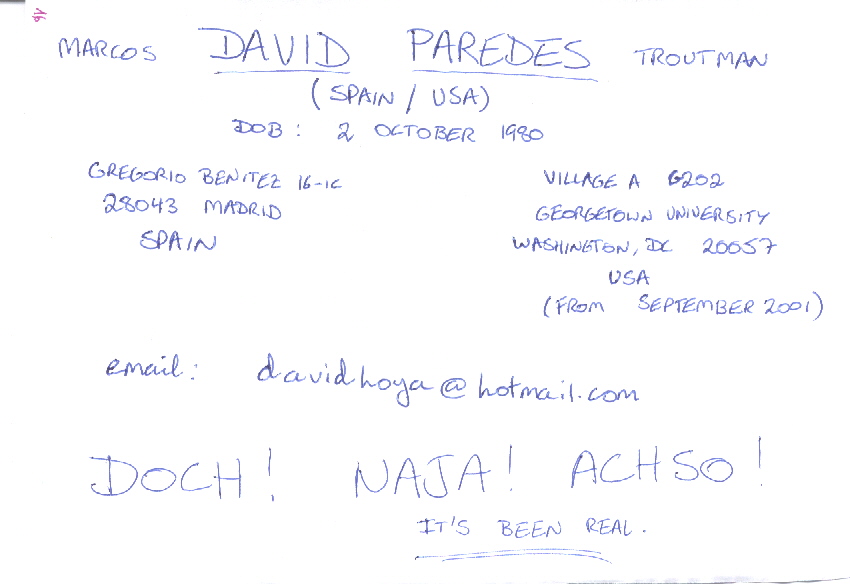 MARCOS DAVID PAREDES TROUTMAN
(SPAIN / USA)
DOB: 2 OCTOBER 1980
GREGORIO BENITEZ 16-1C
28043 MADRID
SPAIN
VILLAGE A G202
GEORGETOWN UNIVERSITY
WASHINGTON, DC 20057
USA
(FROM SEPTEMBER 2001)
email: davidhoya@hotmail.com
DOCH! NAJA! ACHSO!
IT'S BEEN REAL.